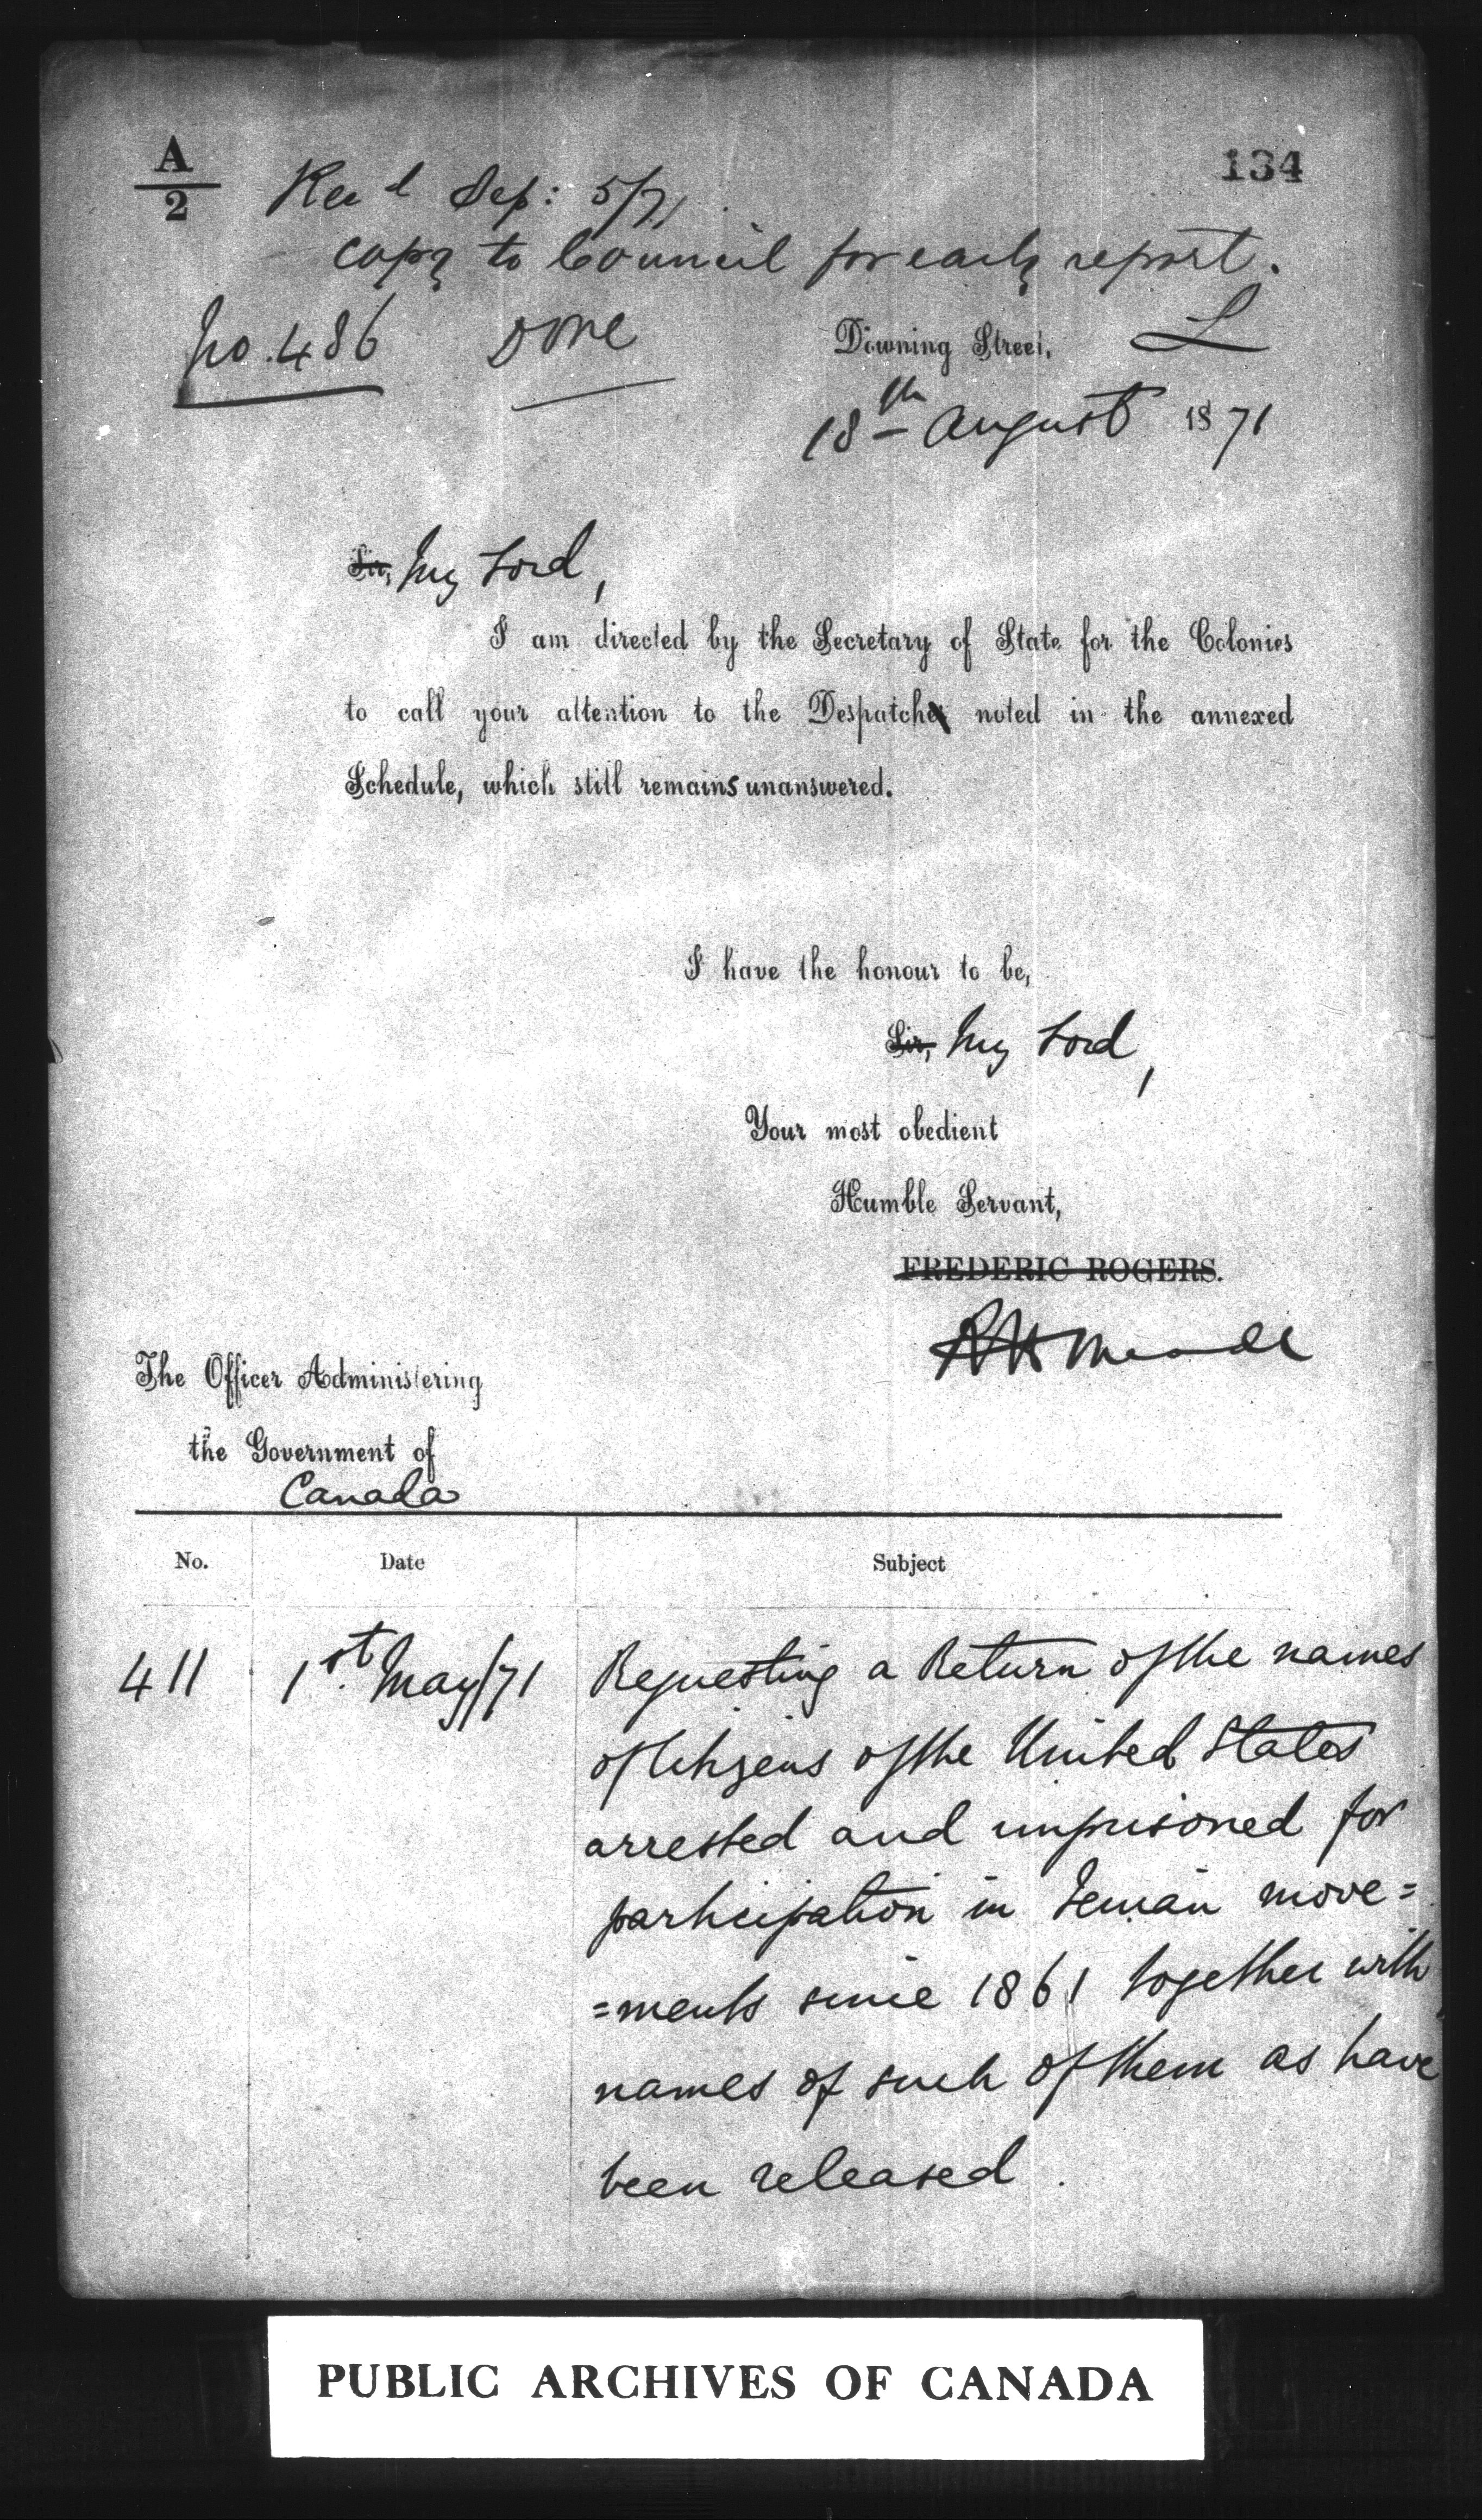 A
2
134
Rec'd Sep: 5/71
copy to Council for early report.
L
No. 486
Done
Downing Street,
18th August 1871
Sir, My Lord,
I am directed by the Secretary of State for the Colonies
to call your attention to the Despatches noted in the annexed
Schedule, which still remains unanswered.
I have the honour to be,
Sir, My Lord,
Your most obedient
Humble Servant,
FREDERIC ROGERS.
RH Meade
The Officer Administering
the Government of
Canada
No. Date Subject
411 1st. May/71 Requesting a Return of the names
of Citizens of the United States
arrested and imprisoned for
participation in Fenian move=
=ments since 1861 together with
names of such of them as have
been released.
PUBLIC ARCHIVES OF CANADA